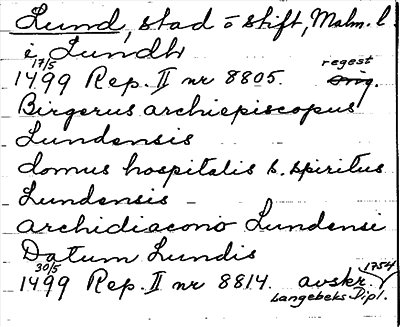 Lund, stad o stift, Malm. l.
i Lundh
17/5 regest
1499 Rep. II nr 8805. orig.
Birgerus archiepiscopus
Lundensis
domus hospitalis s. spiritus
Lundensis
archidiacono Lundensi
Datum Lundis
30/5 1754
1499 Rep. II nr 8814. avskr.
Langebeks Dipl.